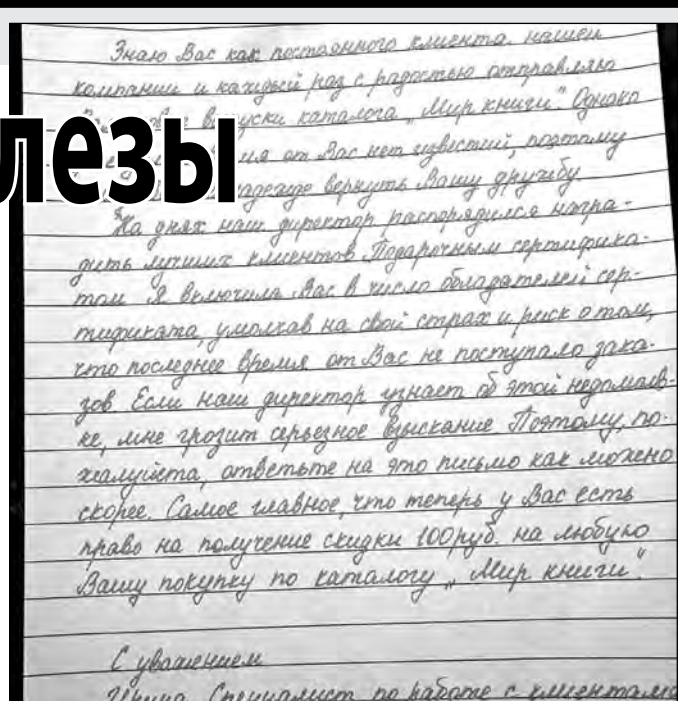 Знаю Вас как постоянного клиента нашей
компании и каждый раз с радостью отправляю
выпуски каталога „Мир книги". Однако
лезы
от Вас нет известий, поэтому
надежде вернуть Вашу дружбу
На днях наш директор распорядился награ-
дить лучших клиентов Подарочным сертифика-
том Я включила Вас в число обладателей сер-
тификата, умолчав на свой страх и риск о том,
что последнее время от Вас не поступало зака-
зов. Если наш директор узнает об этой недомолв-
ке, мне грозит серьезное взыскание Поэтому, по-
жалуйста, ответьте на это письмо как можно
скорее. Самое главное, что теперь у Вас есть
право на получение скидки 100 руб. на любую
Вашу покупку по каталогу „Мир книги".
С уважением
Специалист по работе с клиентами